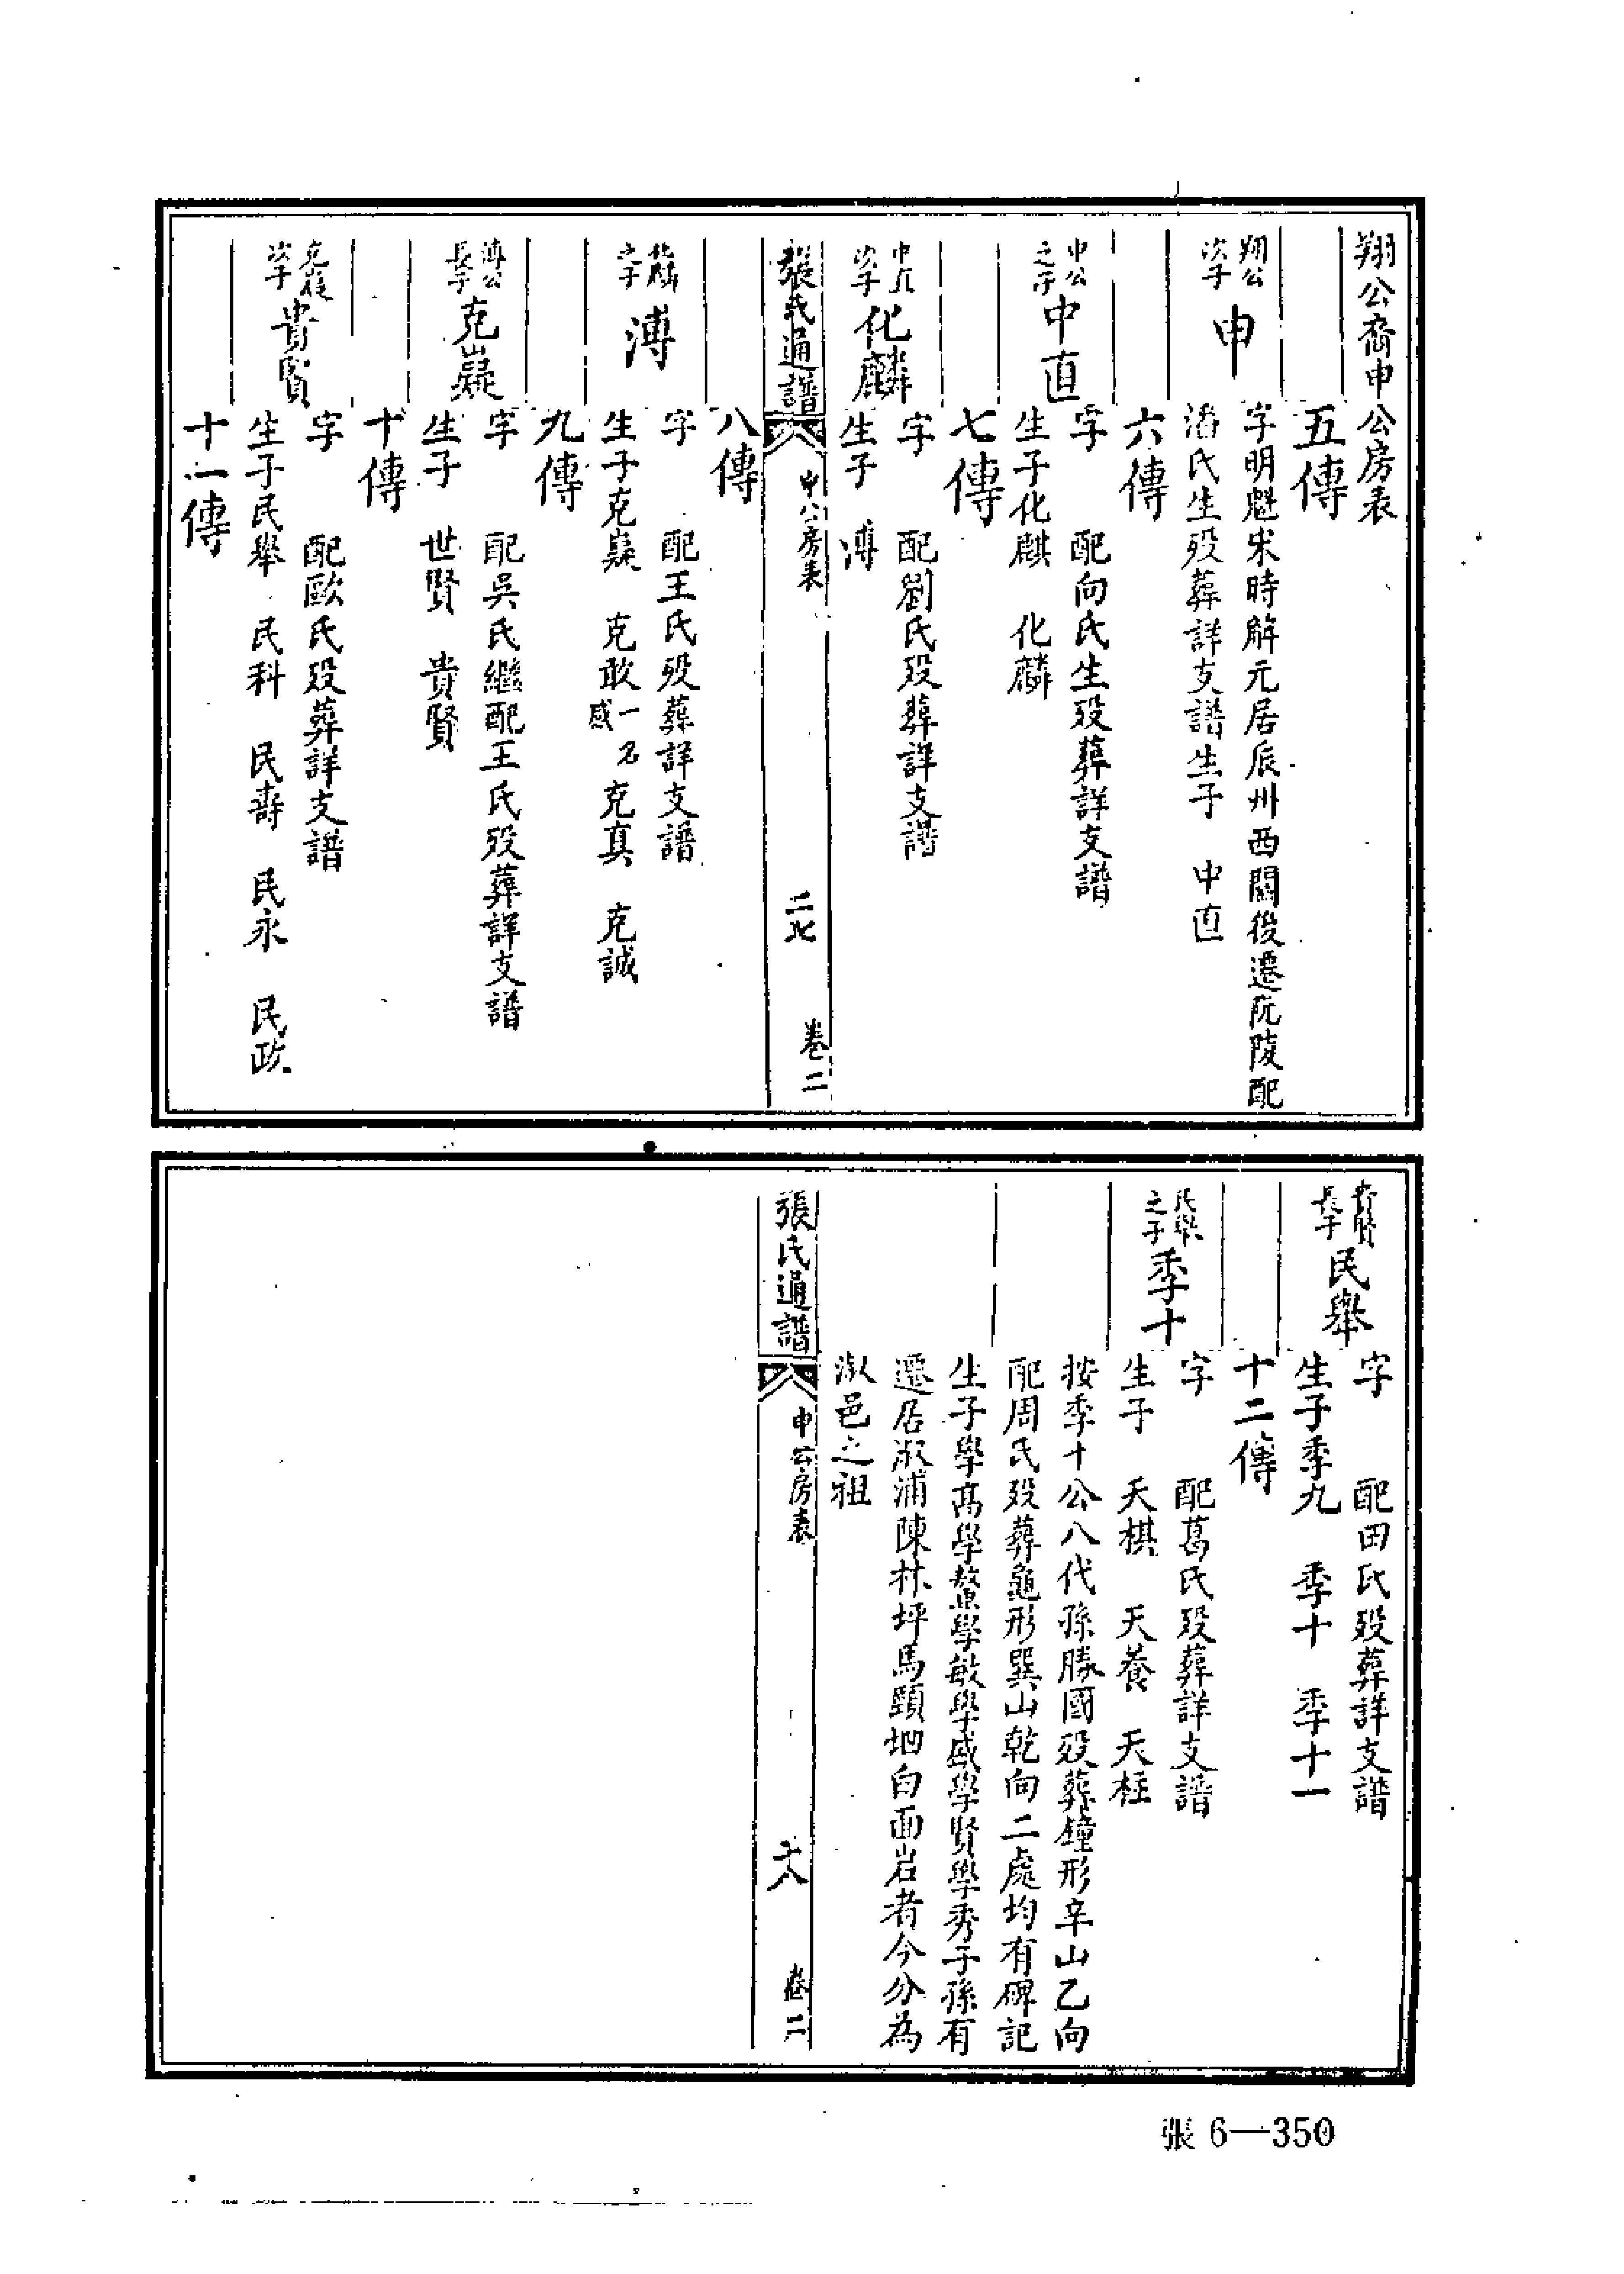 翔公裔申公房表
五傳
翔公
次子
申
字明魁宋時解元居辰州西關後遷沅陵配
潘氏生歿葬詳支譜生子 中直
六傳
申公
之子
中直
字 配向氏生歿葬詳支譜
生子化麒 化麟
七傳
中直
次子
化麟
字 配劉氏歿葬詳支譜
生子 溥
張氏通譜
申公房表
二七
卷二
八傳
化麟
之子
溥
字 配王氏歿葬詳支譜
生子克嶷 克敢一名感 克真 克誠
九傳
溥公
長子
克嶷
字 配吳氏繼配王氏歿葬詳支譜
生子 世賢 貴賢
十傳
克嶷
次子
貴賢
字 配歐氏歿葬詳支譜
生子民舉 民科 民壽 民永 民政
十一傳
貴賢
長子
民舉
字 配田氏歿葬詳支譜
生子季九 季十 季十一
十二傳
民舉
之子
季十
字 配葛氏歿葬詳支譜
生子 天棋 天養 天柱
按季十公八代孫勝國歿葬鐘形辛山乙向
配周氏歿葬龜形巽山乾向二處均有碑記
生子學高學鰲學敏學盛學賢學秀子孫有
遷居溆浦陳林坪馬頸坳白面岩者今分為
溆邑之祖
張氏通譜
申公房表
卷二
張 6—350